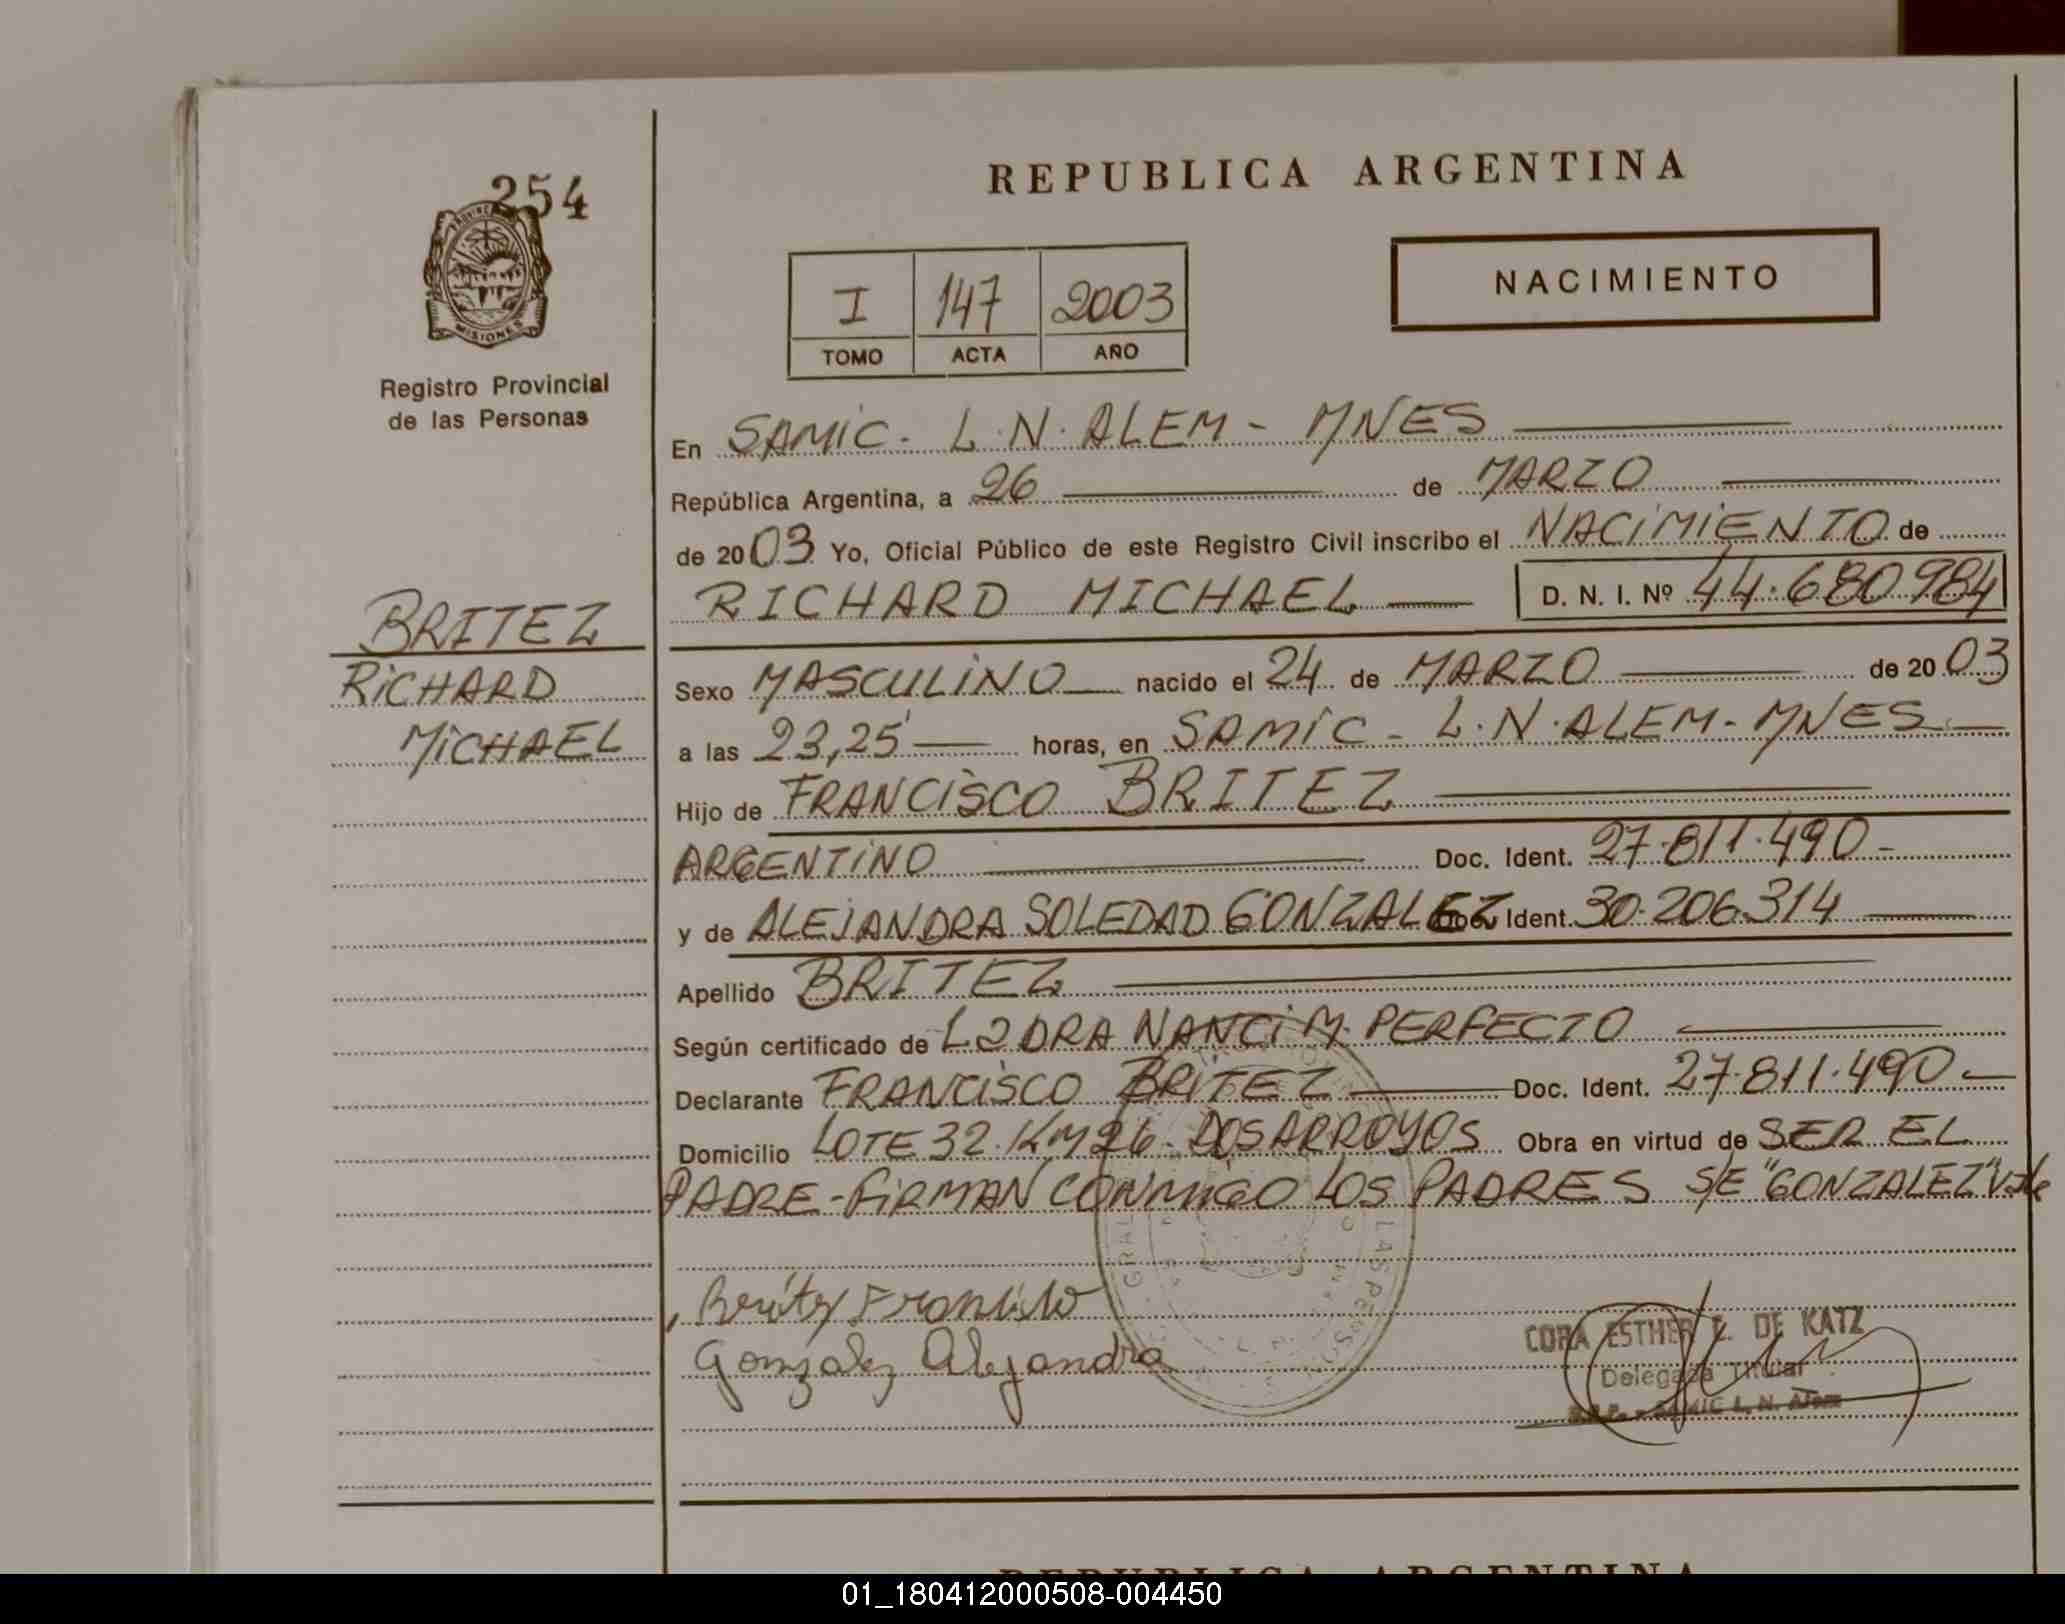 254
PROVINCIA
MISIONES
Registro Provincial
de las Personas
BRITEZ
RICHARD
MICHAEL
REPUBLICA ARGENTINA
NACIMIENTO
I 147 2003
TOMO ACTA AÑO
En SAMIC - L.N. ALEM - MNES
República Argentina, a 26 de MARZO
de 2003 Yo, Oficial Público de este Registro Civil inscribo el NACIMIENTO de
RICHARD MICHAEL D. N. I. Nº 44.680984
Sexo MASCULINO nacido el 24 de MARZO de 2003
a las 23,25 horas, en SAMIC - L.N. ALEM - MNES
Hijo de FRANCISCO BRITEZ
ARGENTINO Doc. Ident. 27.811.490
y de ALEJANDRA SOLEDAD GONZALEZ Doc. Ident. 30.206.314
Apellido BRITEZ
Según certificado de DRA NANCI M. PERFECTO
Declarante FRANCISCO BRITEZ Doc. Ident. 27.811.490
Domicilio LOTE 32 KM 26 - DOS ARROYOS Obra en virtud de SER EL
PADRE - FIRMAN CONMIGO LOS PADRES S/E "GONZALEZ" Vale
Britez Francisco
Gonzalez Alejandra
CORA ESTHER DE KATZ
Delegada Titular
SAMIC L. N. Alem
REPUBLICA ARGENTINA
01_180412000508-004450